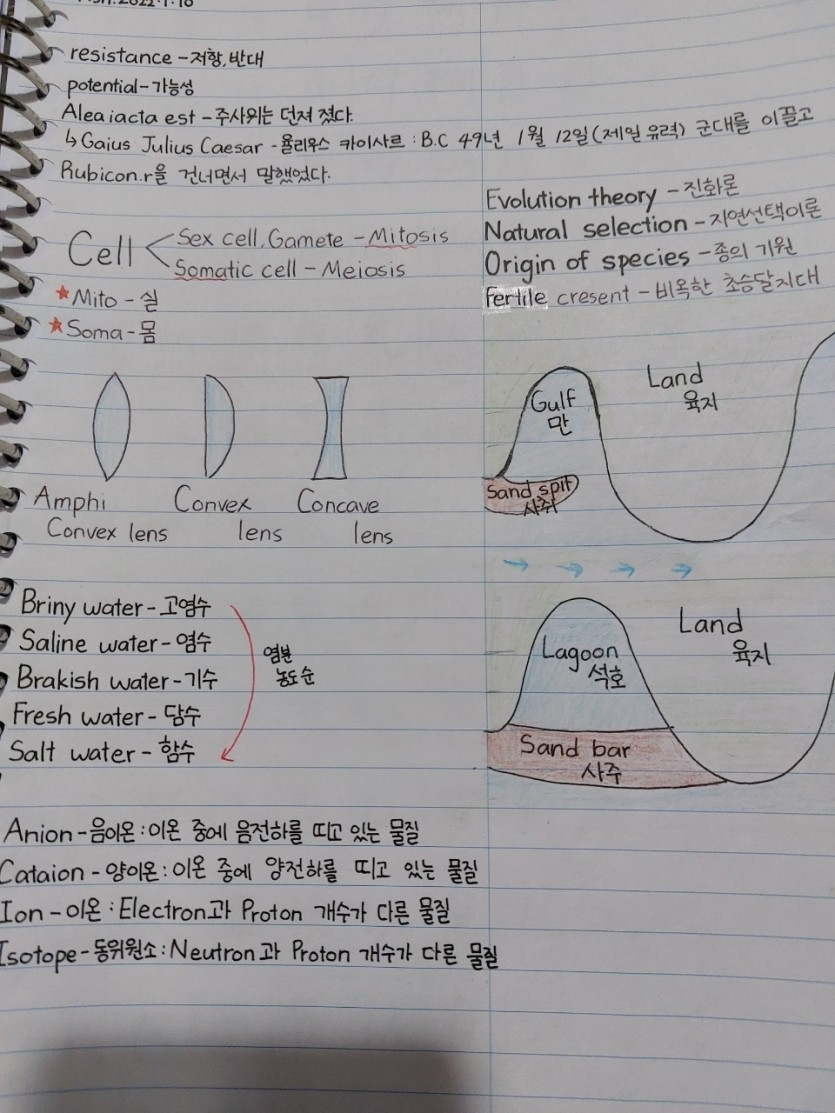 resistance - 저항, 반대
potential - 가능성
Alea iacta est - 주사위는 던져 졌다.
↳ Gaius Julius Caesar - 율리우스 카이사르 : B.C 49년 1월 12일(제일 유력) 군대를 이끌고
Rubicon.r을 건너면서 말했었다.
Cell
Sex cell, Gamete - Mitosis
Somatic cell - Meiosis
★Mito - 실
★Soma - 몸
Amphi
Convex lens
Convex
lens
Concave
lens
Briny water - 고염수
Saline water - 염수
Brakish water - 기수
Fresh water - 담수
Salt water - 함수
염분
농도 순
Evolution theory - 진화론
Natural selection - 자연선택이론
Origin of species - 종의 기원
Fertile cresent - 비옥한 초승달지대
Gulf
만
Land
육지
Sand spit
사취
→ → → →
Lagoon
석호
Land
육지
Sand bar
사주
Anion - 음이온 : 이온 중에 음전하를 띠고 있는 물질
Cataion - 양이온 : 이온 중에 양전하를 띠고 있는 물질
Ion - 이온 : Electron과 Proton 개수가 다른 물질
Isotope - 동위원소 : Neutron과 Proton 개수가 다른 물질